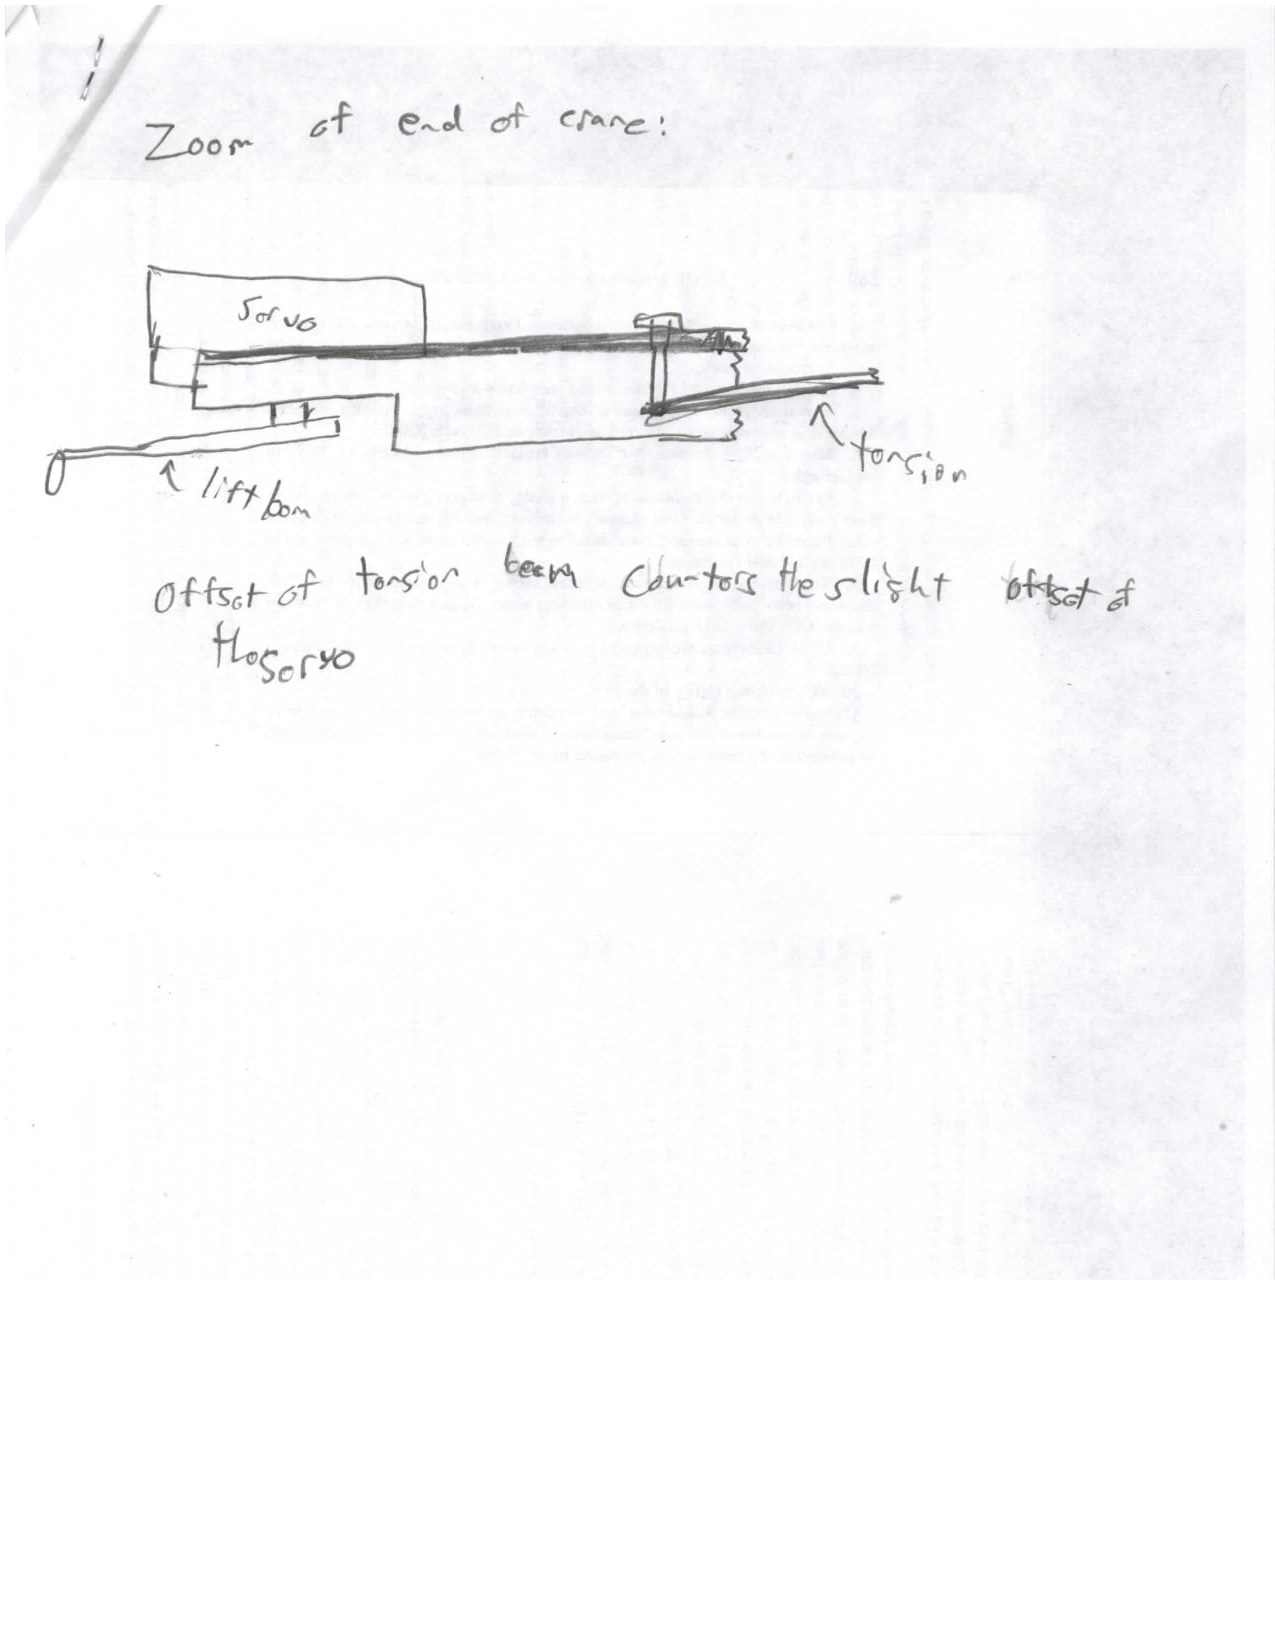 Zoom of end of crane:
Servo
torsion
lift bom
Offset of torsion beam counters the slight offset of
the servo